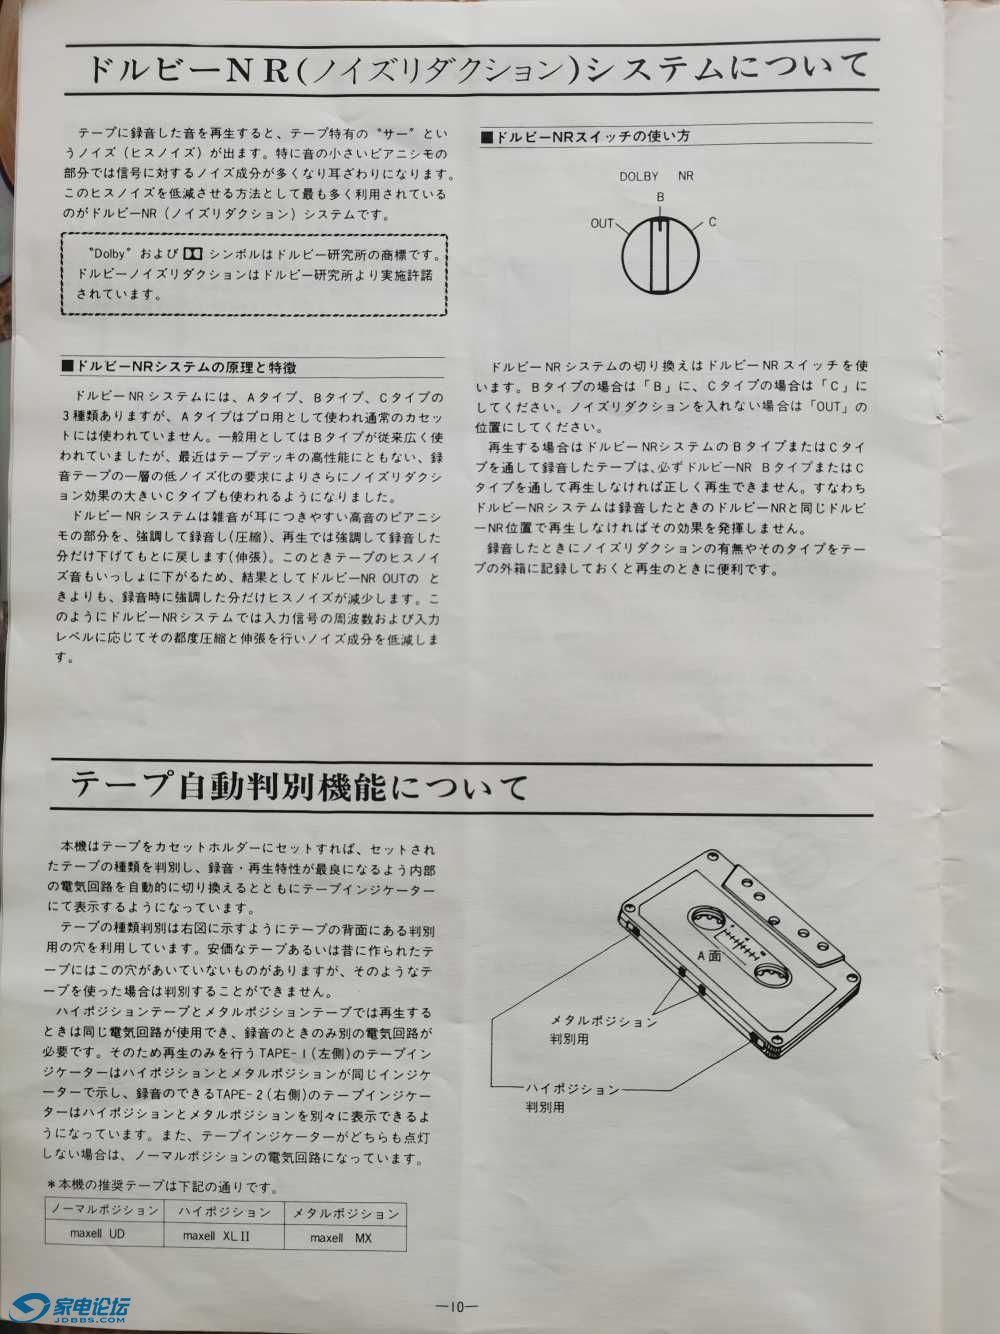 ドルビーNR(ノイズリダクション)システムについて
テープに録音した音を再生すると、テープ特有の〝サー〞とい
うノイズ（ヒスノイズ）が出ます。特に音の小さいピアニシモの
部分では信号に対するノイズ成分が多くなり耳ざわりになります。
このヒスノイズを低減させる方法として最も多く利用されている
のがドルビーNR（ノイズリダクション）システムです。
〝Dolby〞および シンボルはドルビー研究所の商標です。
ドルビーノイズリダクションはドルビー研究所より実施許諾
されています。
■ドルビーNRシステムの原理と特徴
ドルビーNRシステムには、Aタイプ、Bタイプ、Cタイプの
3種類ありますが、Aタイプはプロ用として使われ通常のカセッ
トには使われていません。一般用としてはBタイプが従来広く使
われていましたが、最近はテープデッキの高性能にともない、録
音テープの一層の低ノイズ化の要求によりさらにノイズリダクシ
ョン効果の大きいCタイプも使われるようになりました。
ドルビーNRシステムは雑音が耳につきやすい高音のピアニシ
モの部分を、強調して録音し(圧縮)、再生では強調して録音した
分だけ下げてもとに戻します(伸張)。このときテープのヒスノイ
ズ音もいっしょに下がるため、結果としてドルビーNR OUTの と
きよりも、録音時に強調した分だけヒスノイズが減少します。こ
のようにドルビーNRシステムでは入力信号の周波数および入力
レベルに応じてその都度圧縮と伸張を行いノイズ成分を低減しま
す。
■ドルビーNRスイッチの使い方
DOLBY NR
B
OUT
C
ドルビーNRシステムの切り換えはドルビーNRスイッチを使
います。Bタイプの場合は「B」に、Cタイプの場合は「C」に
してください。ノイズリダクションを入れない場合は「OUT」の
位置にしてください。
再生する場合はドルビーNRシステムのBタイプまたはCタイ
プを通して録音したテープは、必ずドルビーNR BタイプまたはC
タイプを通して再生しなければ正しく再生できません。すなわち
ドルビーNRシステムは録音したときのドルビーNRと同じドルビ
ーNR位置で再生しなければその効果を発揮しません。
録音したときにノイズリダクションの有無やそのタイプをテー
プの外箱に記録しておくと再生のときに便利です。
テープ自動判別機能について
本機はテープをカセットホルダーにセットすれば、セットされ
たテープの種類を判別し、録音・再生特性が最良になるよう内部
の電気回路を自動的に切り換えるとともにテープインジケーター
にて表示するようになっています。
テープの種類判別は右図に示すようにテープの背面にある判別
用の穴を利用しています。安価なテープあるいは昔に作られたテ
ープにはこの穴があいていないものがありますが、そのようなテ
ープを使った場合は判別することができません。
ハイポジションテープとメタルポジションテープでは再生する
ときは同じ電気回路が使用でき、録音のときのみ別の電気回路が
必要です。そのため再生のみを行うTAPE-1(左側)のテープイン
ジケーターはハイポジションとメタルポジションが同じインジケ
ーターで示し、録音のできるTAPE-2(右側)のテープインジケー
ターはハイポジションとメタルポジションを別々に表示できるよ
うになっています。また、テープインジケーターがどちらも点灯
しない場合は、ノーマルポジションの電気回路になっています。
＊本機の推奨テープは下記の通りです。
ノーマルポジション ハイポジション メタルポジション
maxell UD maxell XLII maxell MX
A面
メタルポジション
判別用
ハイポジション
判別用
—10—
家电论坛
JDBBS.COM